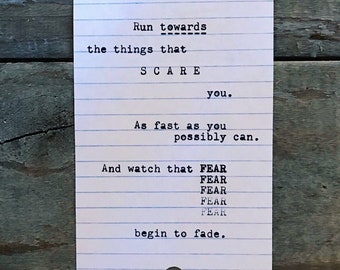 Run towards
the things that
S C A R E
you.
As fast as you
possibly can.
And watch that FEAR
FEAR
FEAR
FEAR
FEAR
begin to fade.